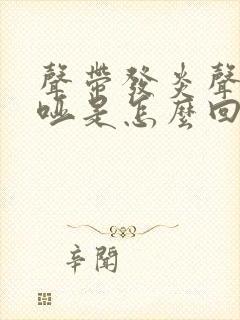 聲帶發炎聲
啞是怎麼回
辛聞